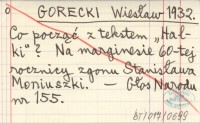 GORECKI Wiesław 1932.
Co począć z tekstem „Hal-
ki"? Na marginesie 60-tej
rocznicy zgonu Stanisława
Moniuszki. – Głos Narodu
nr 155.